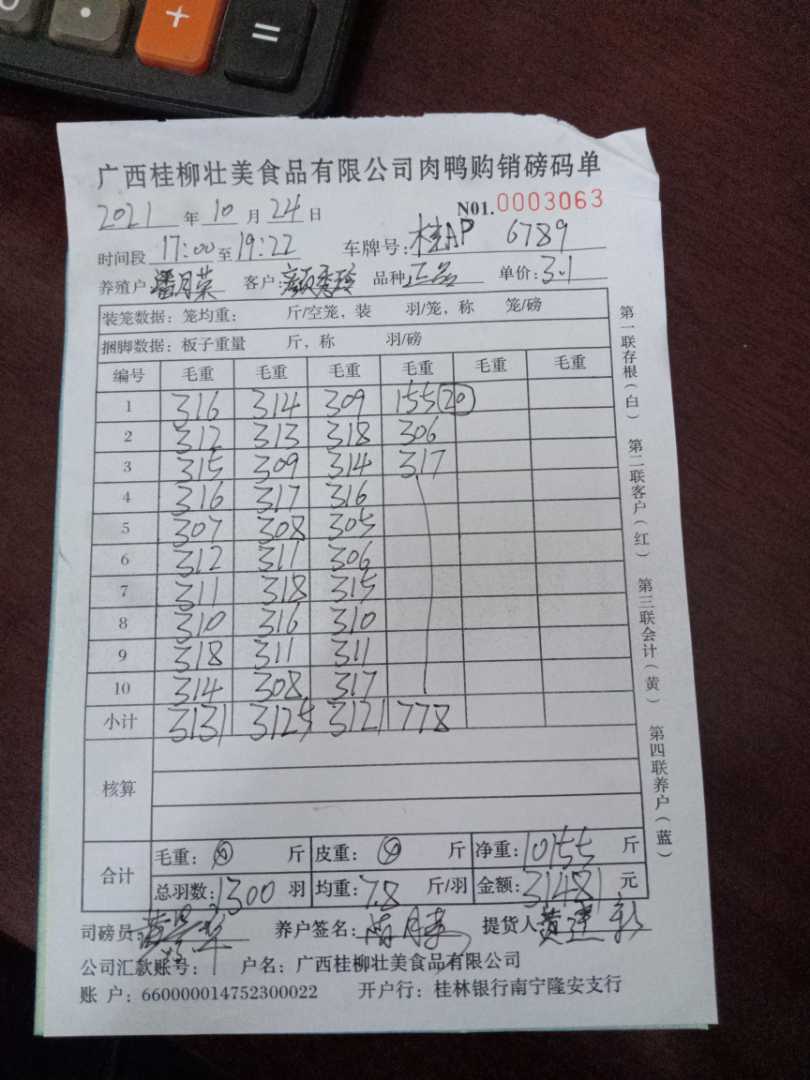 + =
广西桂柳壮美食品有限公司肉鸭购销磅码单
2021 年 10 月 24 日 N01.0003063
时间段 17:00 至 19:22 车牌号: 桂AP 6789
养殖户: 潘月荣 客户: 颜秀玲 品种: 正品 单价: 3.1
装笼数据: 笼均重: 斤/空笼, 装 羽/笼, 称 笼/磅
捆脚数据: 板子重量 斤, 称 羽/磅
编号 毛重 毛重 毛重 毛重 毛重 毛重
1 316 314 309 155 20
2 312 313 318 306
3 315 309 314 317
4 316 317 316
5 307 308 305
6 312 311 306
7 311 318 315
8 310 316 310
9 318 311 311
10 314 308 317
小计 3131 3125 3121 778
核算
合计
毛重: 斤 皮重: 斤 净重: 10155 斤
总羽数: 1300 羽 均重: 7.8 斤/羽 金额: 31481 元
司磅员: 养户签名: 提货人
公司汇款账号: 户名: 广西桂柳壮美食品有限公司
账 户: 660000014752300022 开户行: 桂林银行南宁隆安支行
第一联存根(白) 第二联客户(红) 第三联会计(黄) 第四联养户(蓝)